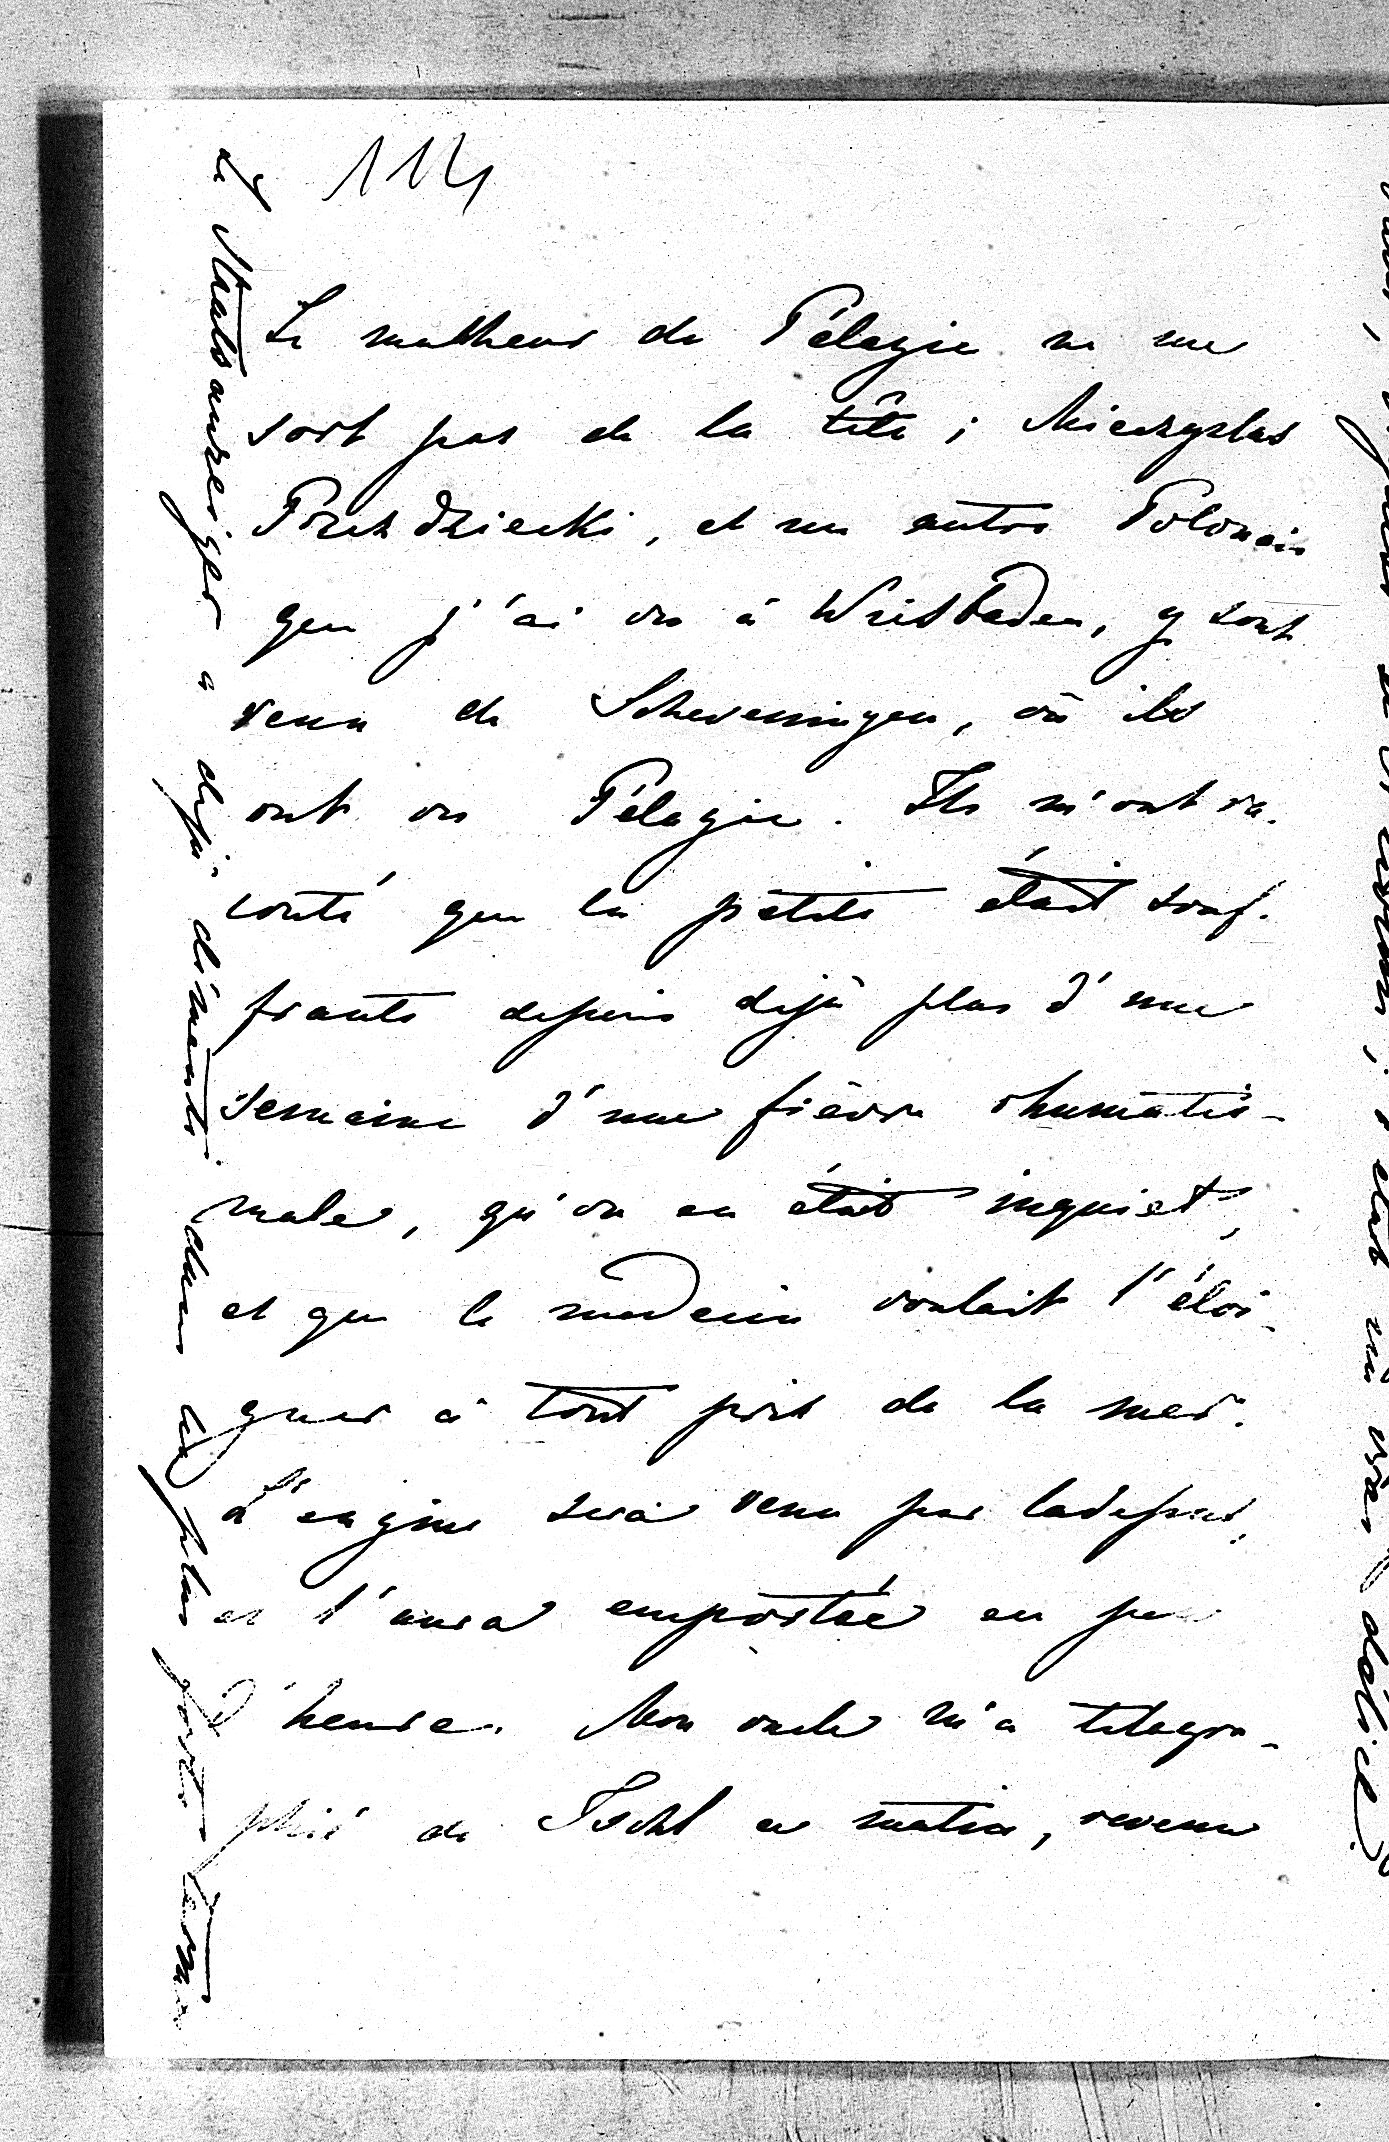 114
Le malheur de Pélagie ne me
sort pas de la tête ; Mieczyslas
Przezdziecki, et un autre Polonais
que j'ai vu à Wiesbaden, y sont
venu de Scheveningen, où ils
ont vu Pélagie. Ils m'ont ra-
conté que la petite était souf-
frante depuis déjà plus d'une
semaine d'une fièvre rhumatis-
male, qu'on en était inquiet,
et que le medecin voulait l'éloi-
gner à tout prix de la mer.
L'angine sera venu par ladessus,
et l'aura emportée en peu
d'heure. Mon oncle m'a telegra-
phié de Ischl ce matin, revenu
le Staatsanzeiger a déjà démenti dans les plus forts termes